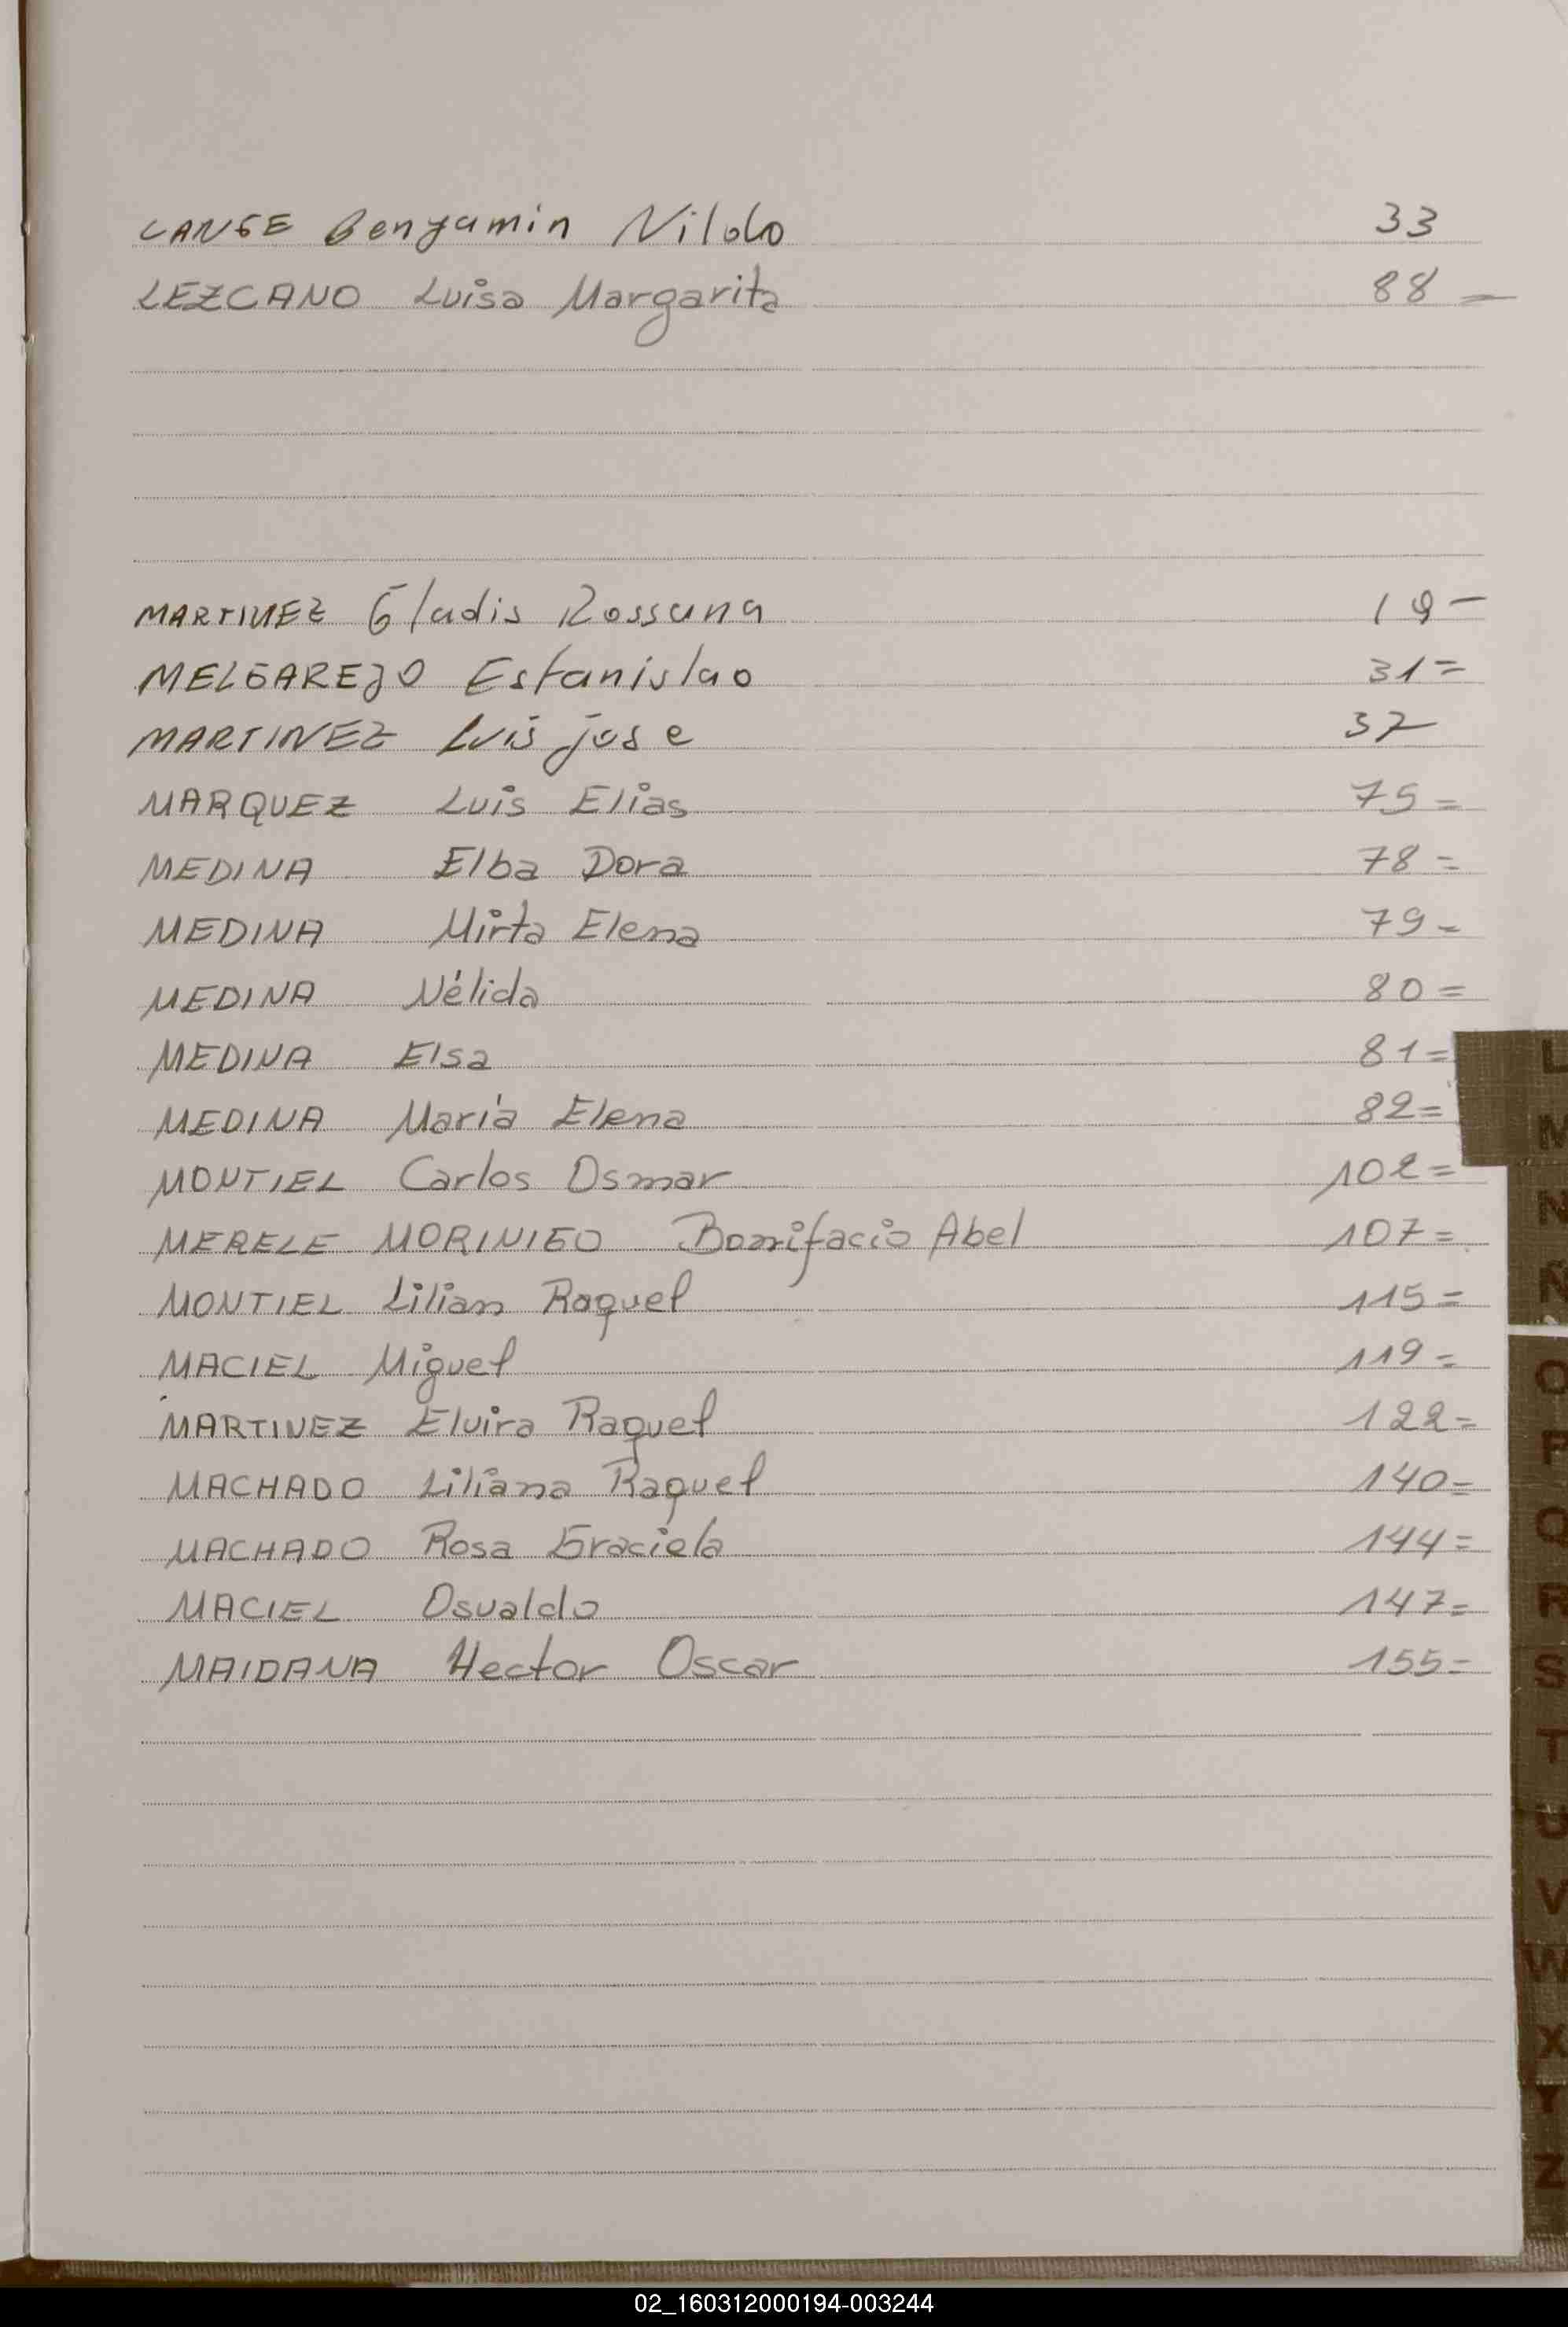 LANGE Benjamin Nildo 33
LEZCANO Luisa Margarita 88 —
MARTINEZ Gladis Rossana 19 -
MELGAREJO Estanislao 31 =
MARTINEZ Luis jose 37
MARQUEZ Luis Elias 75 =
MEDINA Elba Dora 78 =
MEDINA Mirta Elena 79 =
MEDINA Nélida 80 =
MEDINA Elsa 81 =
MEDINA María Elena 82 =
MONTIEL Carlos Osmar 102 =
MERELE MORINIGO Bonifacio Abel 107 =
MONTIEL Lilian Raquel 115 =
MACIEL Miguel 119 =
MARTINEZ Elvira Raquel 122 =
MACHADO Liliana Raquel 140 =
MACHADO Rosa Graciela 144 =
MACIEL Osvaldo 147 =
MAIDANA Hector Oscar 155 =
L
M
N
Ñ
O
P
Q
R
S
T
U
V
W
X
Y
Z
02_160312000194-003244